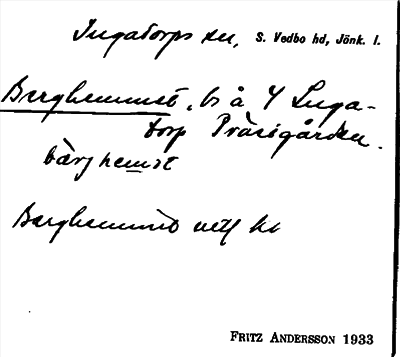 Ingatorps sn, S. Vedbo hd, Jönk. l.
Berghemmet, ls å 4 Inga-
torp Prästgården.
bàrjhemet
Berghemmet
FRITZ ANDERSSON 1933